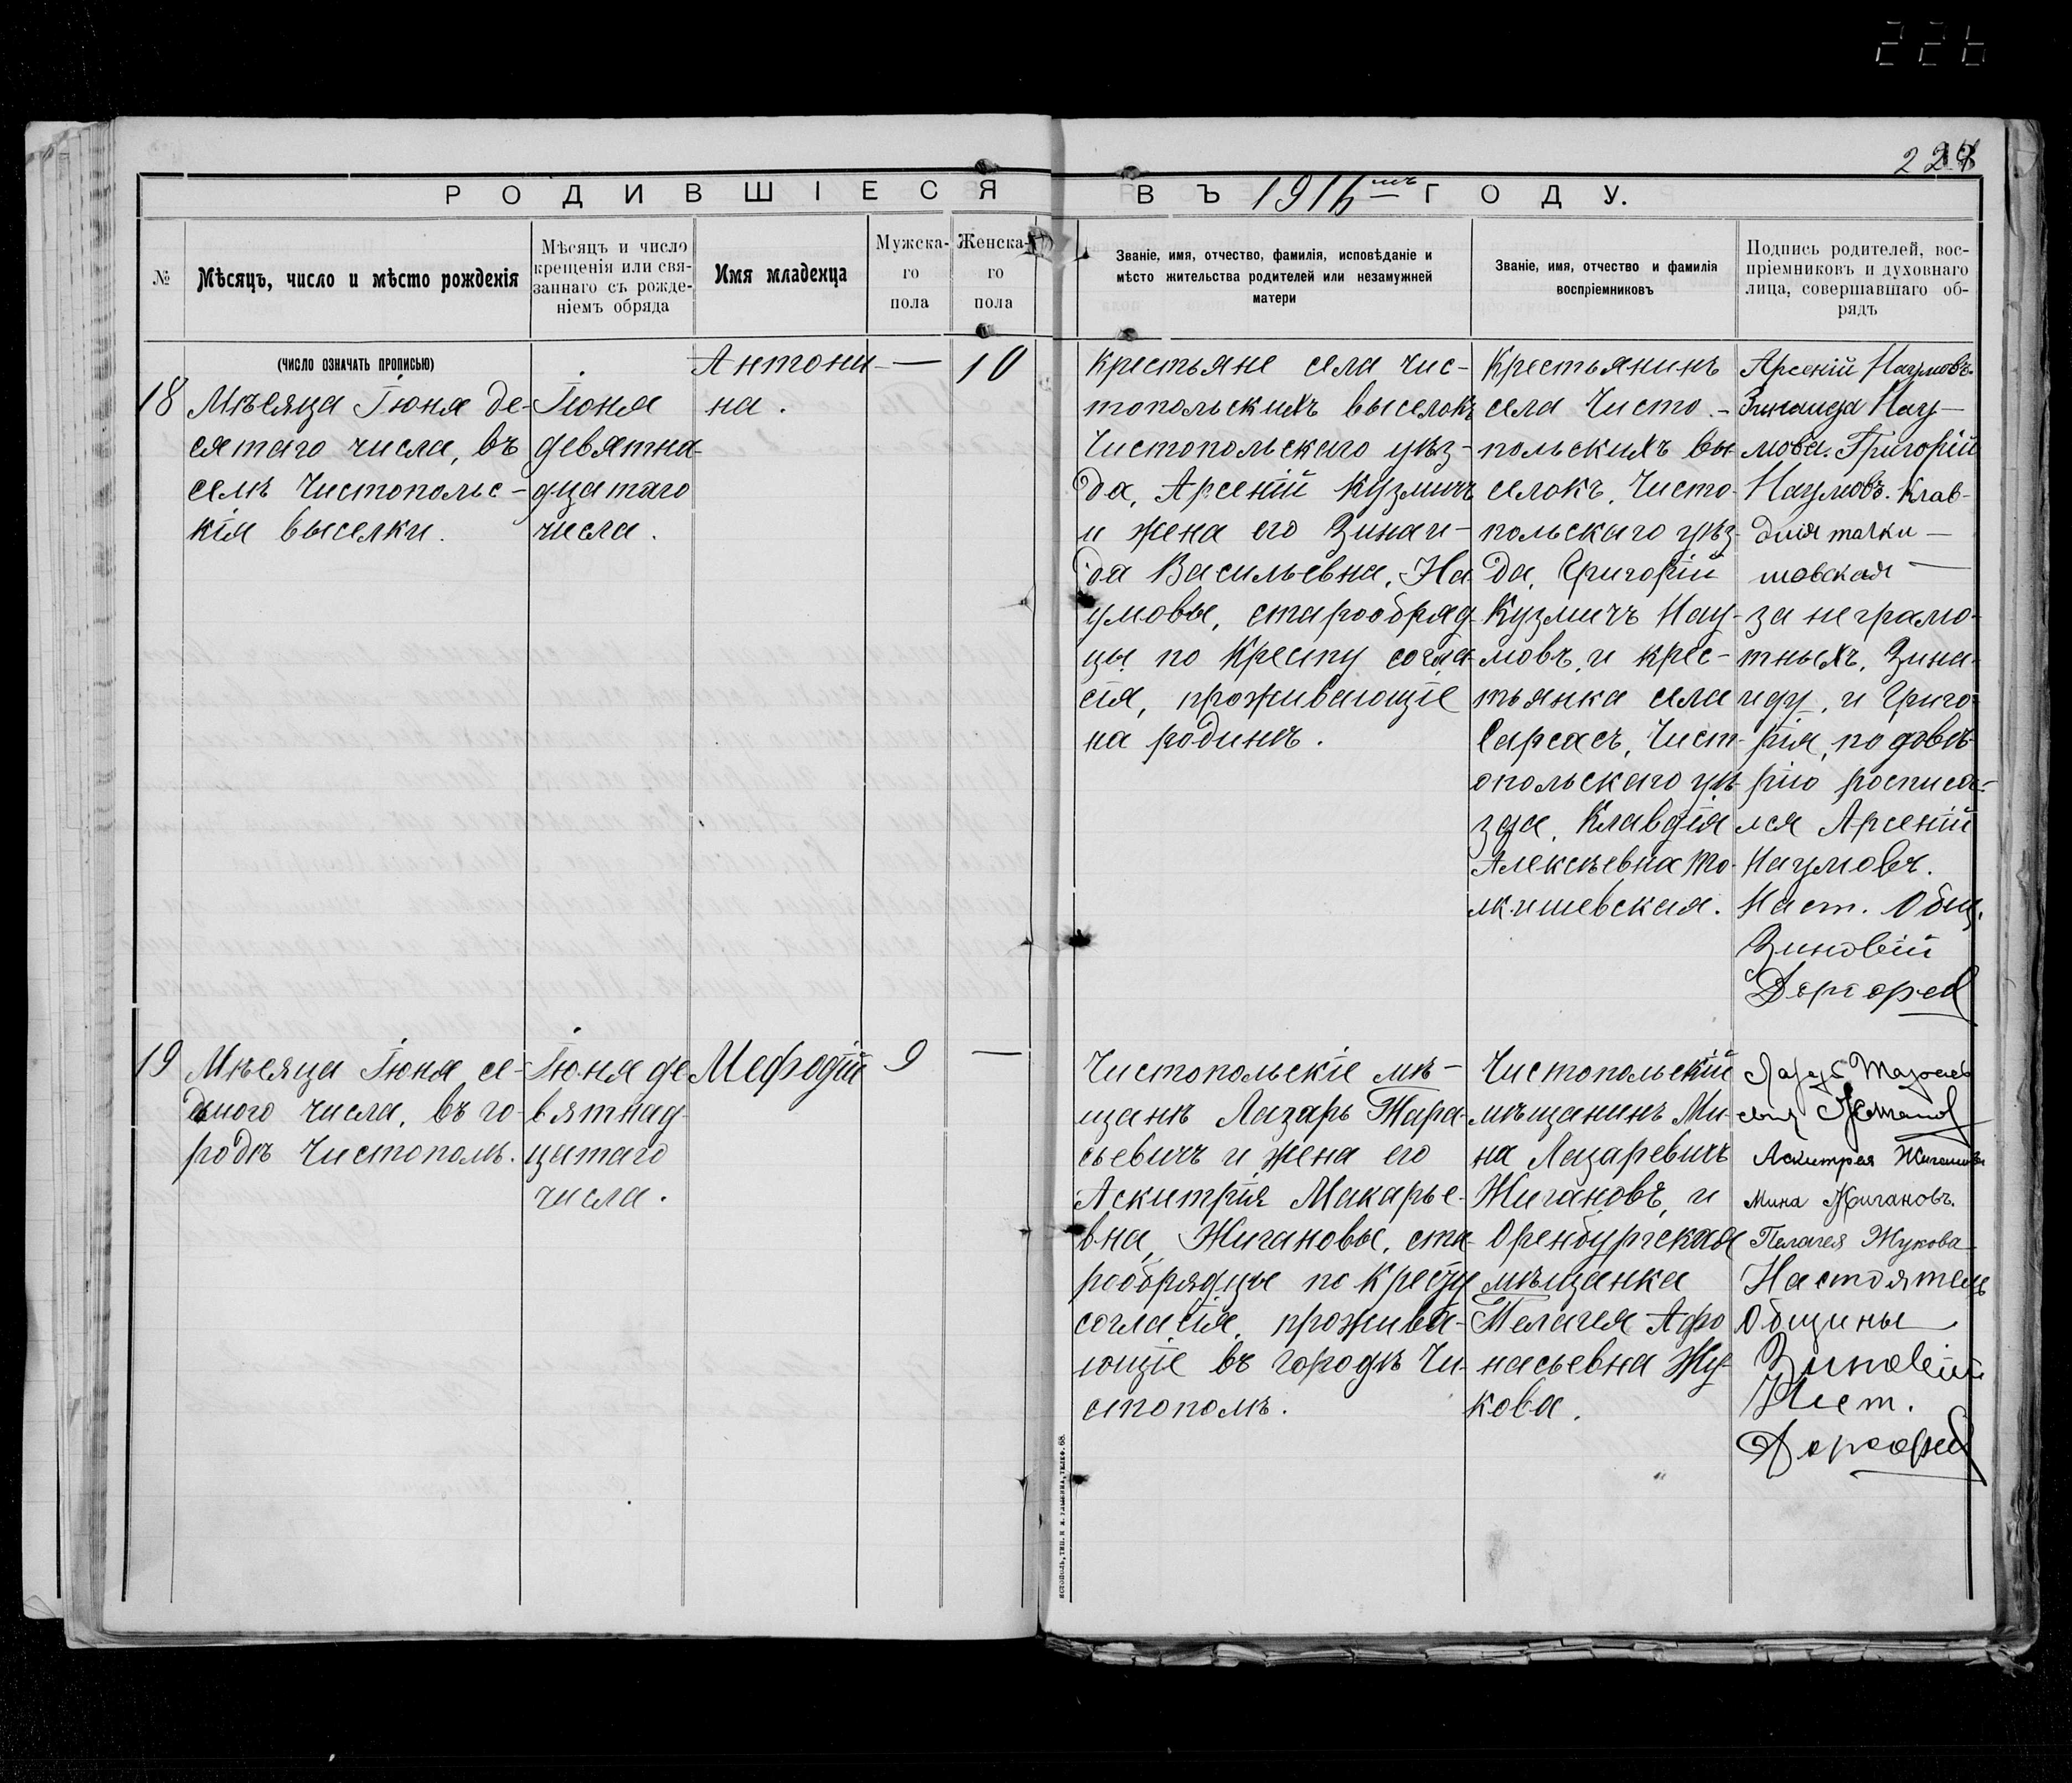 226
РОДИВШІЕСЯ ВЪ 1916мъ ГОДУ.
№
Мѣсяцъ, число и мѣсто рожденія
Мѣсяцъ и число
крещенія или свя-
заннаго съ рожде-
ніемъ обряда
Имя младенца
Мужска-
го
пола
Женска-
го
пола
Званіе, имя, отчество, фамилія, исповѣданіе и
мѣсто жительства родителей или незамужней
матери
Званіе, имя, отчество и фамилія
воспріемниковъ
Подпись родителей, вос-
пріемниковъ и духовнаго
лица, совершавшаго об-
рядъ
(ЧИСЛО ОЗНАЧАТЬ ПРОПИСЬЮ)
18
Мѣсяца Іюня де-
сятаго числа, въ
селѣ Чистопольс-
кія выселки.
Іюня
девятна-
дцатаго
числа.
Антони-
на.
—
10
Крестьяне села Чис-
топольскихъ выселокъ
Чистопольскаго уѣз-
да, Арсеній Кузмичъ
и жена его Зинаи-
да Васильевна, На-
умовы, старообряд-
цы по Кресту согла-
сія, проживающіе
на родинѣ.
Крестьянинъ
села Чисто-
польскихъ вы-
селокъ, Чисто-
польскаго уѣз-
да, Григорій
Кузмичъ Нау-
мовъ, и крес-
тьянка села
Сарсасъ, Чист-
опольскаго уѣ-
зда, Клавдія
Алексѣевна То-
лкишевская.
Арсеній Наумовъ.
Зинаида Нау-
мова. Григорій
Наумовъ. Клав-
дия талки-
шовская
за неграмо-
тныхъ, Зина-
иду, и Григо-
рія, по довѣ-
рію росписа-
лся Арсеній
Наумовъ.
Наст. Общ.
Зиновій
19
Мѣсяца Іюня се-
дмого числа, въ го-
родѣ Чистополѣ.
Іюня де-
вятнад-
цатаго
числа.
Мефодій
9
—
Чистопольскіе мѣ-
щанѣ Лазарь Тара-
сьевичъ и жена его
Аскитрія Макарье-
вна, Жигановы, ста-
рообрядцы по Кресту
согласія, прожива-
ющіе въ городѣ Чи-
стополѣ.
Чистопольскій
мѣщанинъ Ми-
на Лазаревичъ
Жигановъ, и
Оренбургская
мѣщанка
Пелагея Афо-
насьевна Жу-
кова.
Аскитрея
Мина Жигановъ.
Пелагея Жукова
Настоятель
Общины
Зиновій